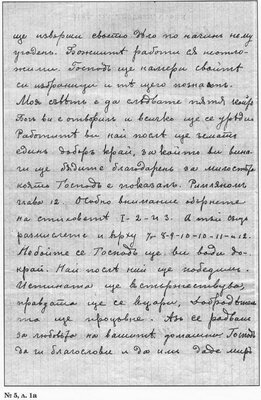 ще извърши своето дѣло по начинъ нему
угоденъ. Божиитѣ работи сѫ неотло-
жими. Господь ще намери своитѣ
си избраници и тѣ него познаятъ.
Моя съвѣтъ е да следвате пѫтя който
Богъ ви е отворилъ и всичко ще се уреди.
Работитѣ ви най послѣ ще иматъ
единъ добъръ край, за който ви вина-
ги ще бѫдите благодаренъ за милостьта
която Господь е показалъ. Римляномъ
глава 12. Особно внимание обърнете
на стиховетѣ 1-2 и 3. А тъй също
размислете и върху 7-8-9-10-10-11-и 12.
Небойте се Господь ще ви води до-
край. Най послѣ ний ще победимъ.
Истината ще възтържествува,
правдата ще се въцари, добродѣтель
та ще процъвне. Азъ се радвамъ
за любовьта на вашитѣ домашни Господь
да ги благослови и да имъ даде миръ
№ 5, л. 1а